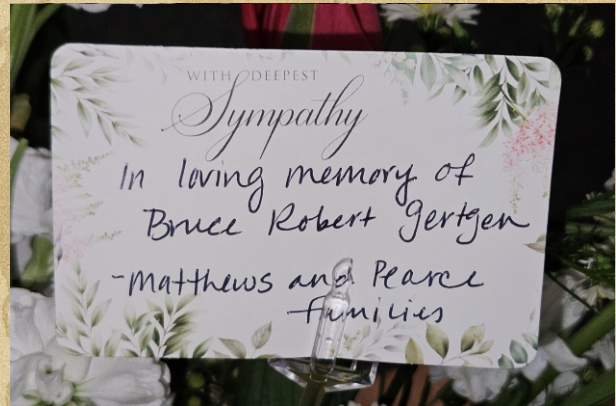 WITH DEEPEST
Sympathy
In loving memory of
Bruce Robert Gertgen
-Matthews and Pearce
families